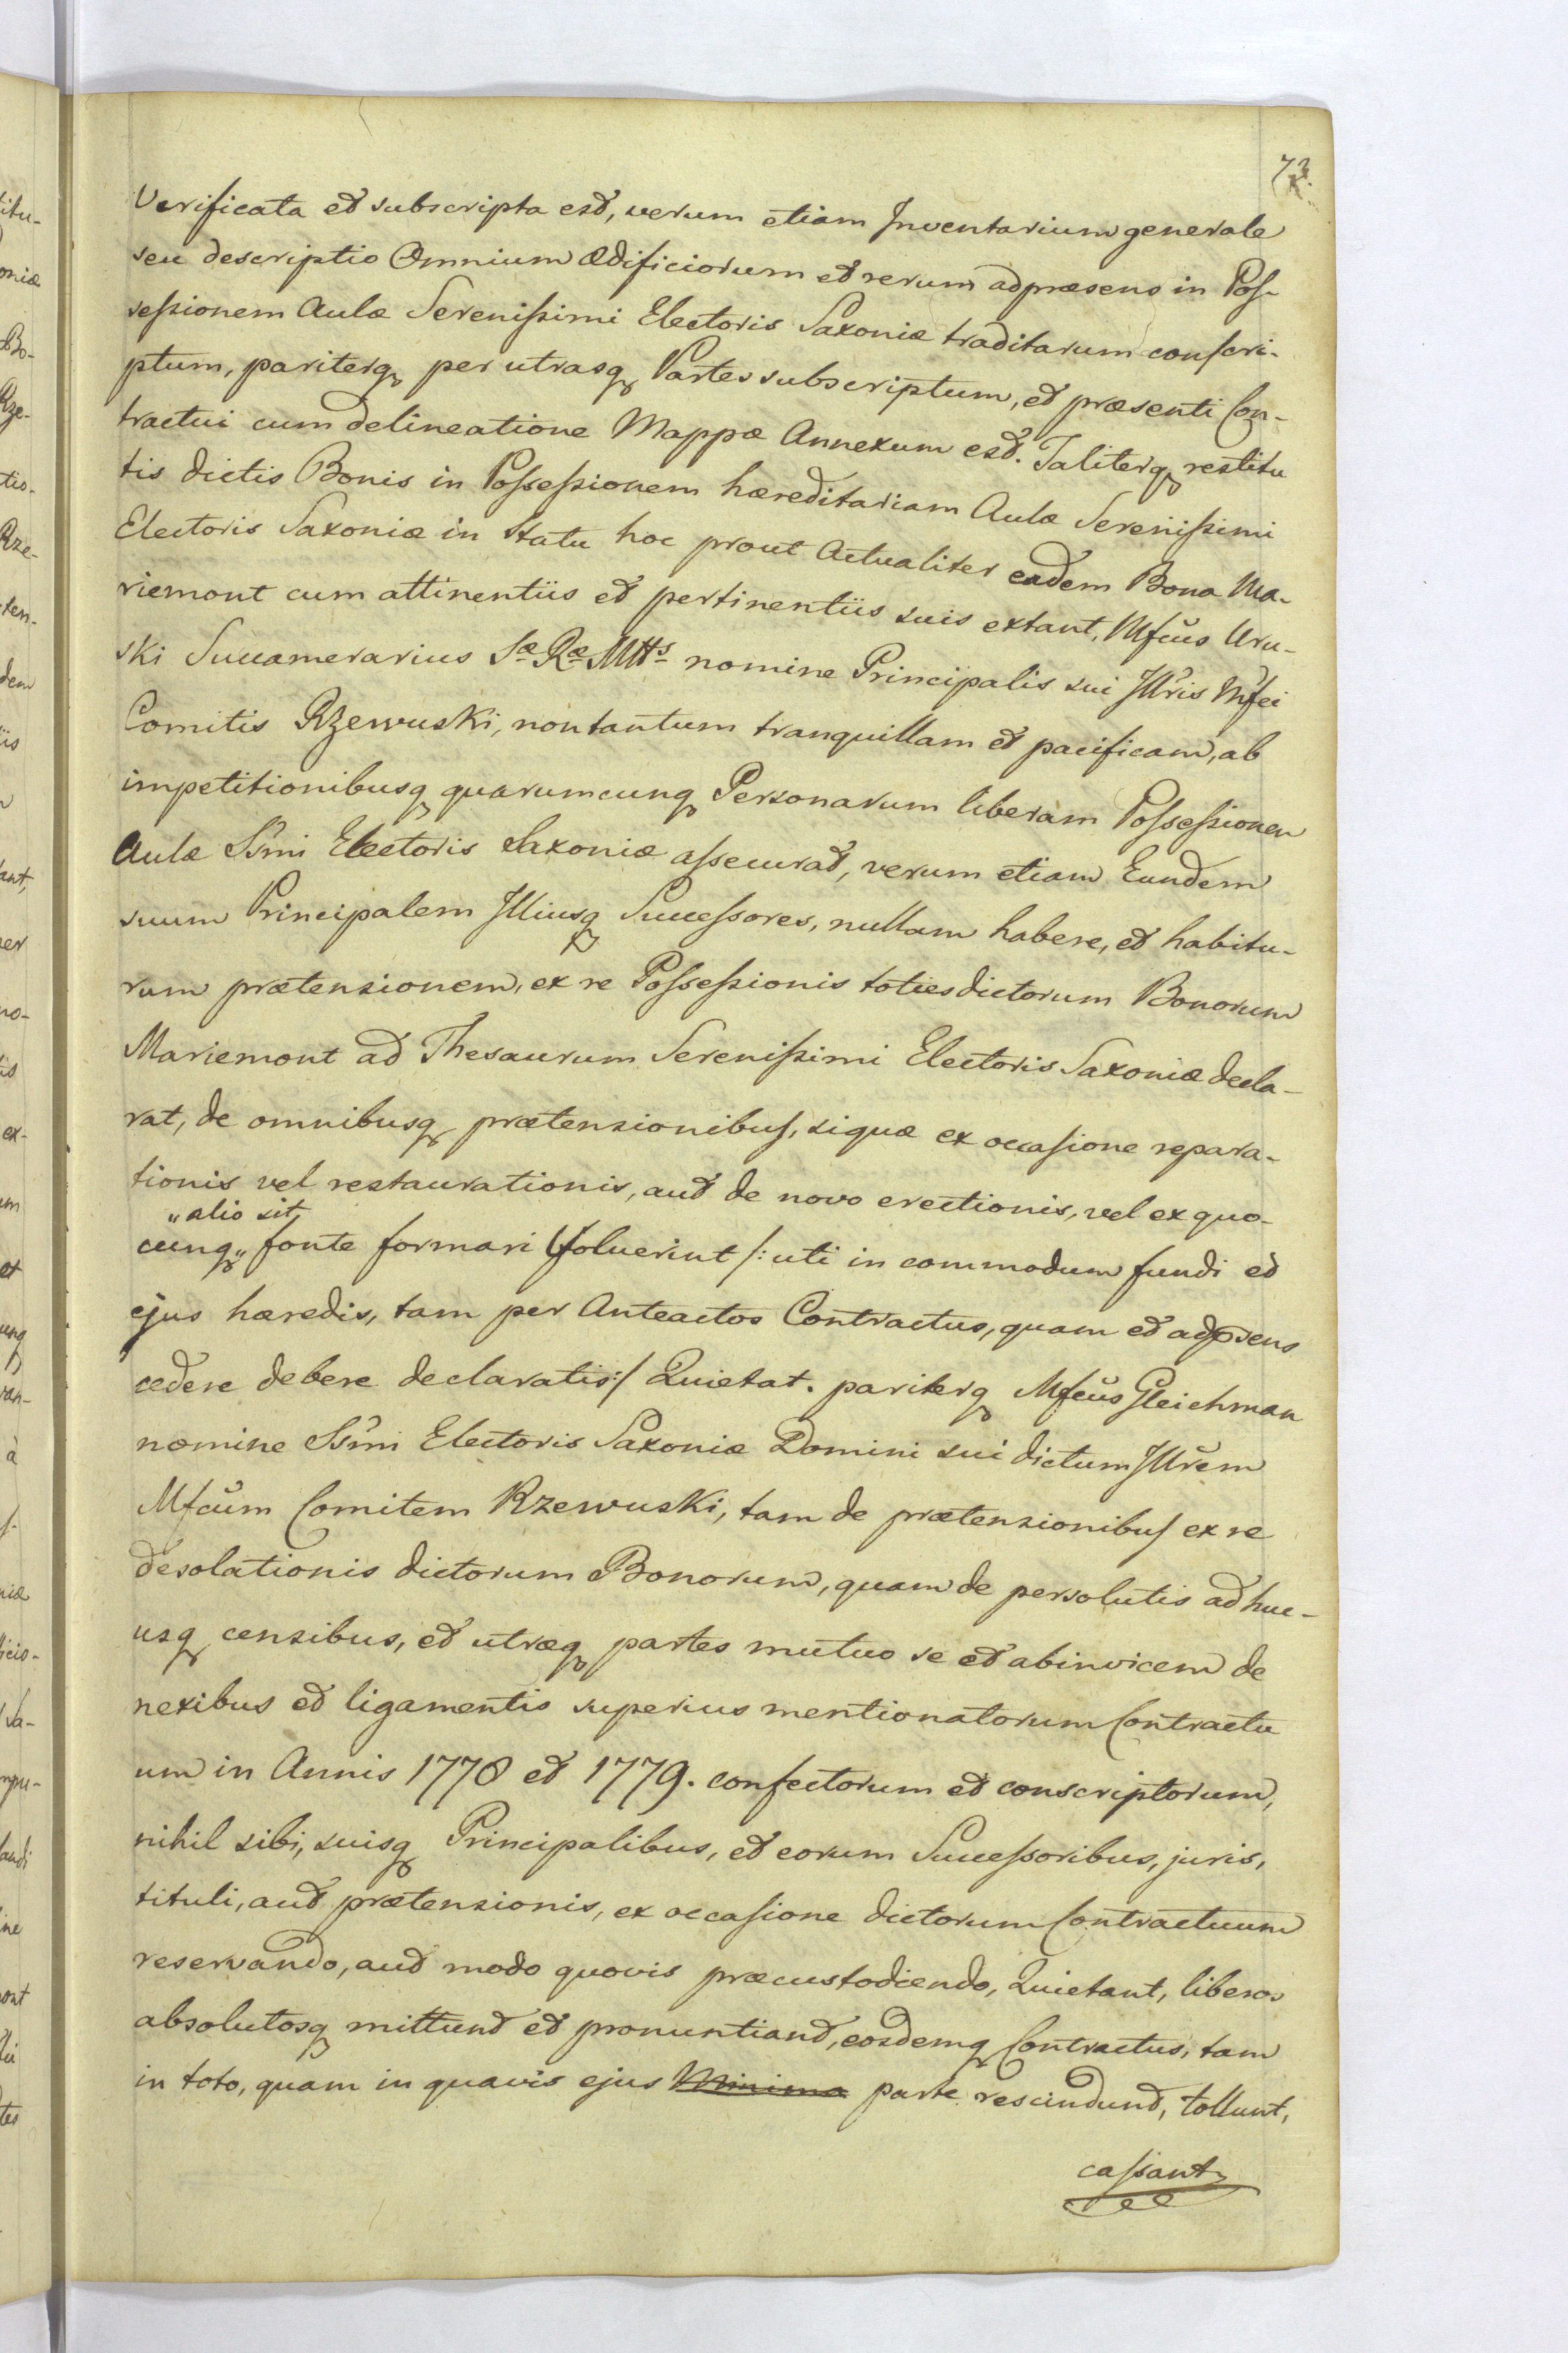 73
Verificata et subscripta est, verum etiam Inventarium generale
seu descriptio Omnium Ædificiorum et rerum adpræsens in Poſ-
seſsionem Aulæ Sereniſsimi Electoris Saxoniæ traditarum conſcri-
ptum, pariterq per utrasq Partes subscriptum, et præsenti Con-
tractui cum delineatione Mappæ Annexum est. Taliterq restitu
tis dictis Bonis in Poſseſsionem hæreditariam Aulæ Sereniſsimi
Electoris Saxoniæ in Statu hoc prout Actualiter eadem Bona Ma-
riemont cum attinentiis et pertinentiis suis extant, Mfcus Uru-
ski Succamerarius Sæ Ræ Mtts nomine Principalis sui Illris Mfci
Comitis Rzewuski, non tantum tranquillam et pacificam, ab
impetitionibusq quarumcunq Personarum liberam Poſseſsionem
Aulæ Ssmi Electoris Saxoniæ aſsecurat, verum etiam Eundem
suum Principalem Illiusq Succeſsores, nullam habere, et habitu-
rum prætensionem, ex re Poſseſsionis totiesdictorum Bonorum
Mariemont ad Thesaurum Sereniſsimi Electoris Saxoniæ decla-
rat, de omnibusq prætensionibuſ, siquæ ex occaſione repara-
tionis vel restaurationis, aut de novo erectionis, vel ex quo-
"alio sit,
cunq" fonte formari voluerint /: uti in commodum fundi et
ejus hæredis, tam per Anteactos Contractus, quam et adpræens
cedere debere declaratis :/ Quietat. pariterq Mfcus Gleichman
nomine Ssmi Electoris Saxoniæ Domini sui dictum Illrem
Mfcum Comitem Rzewuski, tam de prætensionibuſ ex re
desolationis dictorum Bonorum, quam de persolutis ad huc-
usq censibus, et utræq partes mutuo se et abinvicem de
nexibus et ligamentis superius mentionatorum Contractu
um in Annis 1778 et 1779. confectorum et conscriptorum,
nihil sibi, suisq Principalibus, et eorum Succeſsoribus, juris,
tituli, aut prætensionis, ex occaſione dictorum Contractuum
reservando, aut modo quovis præcustodiendo, Quietant, liberos
absolutosq mittunt et pronuntiant, eosdemq Contractus, tam
in toto, quam in quavis ejus Minima parte rescindunt, tollunt,
caſsant